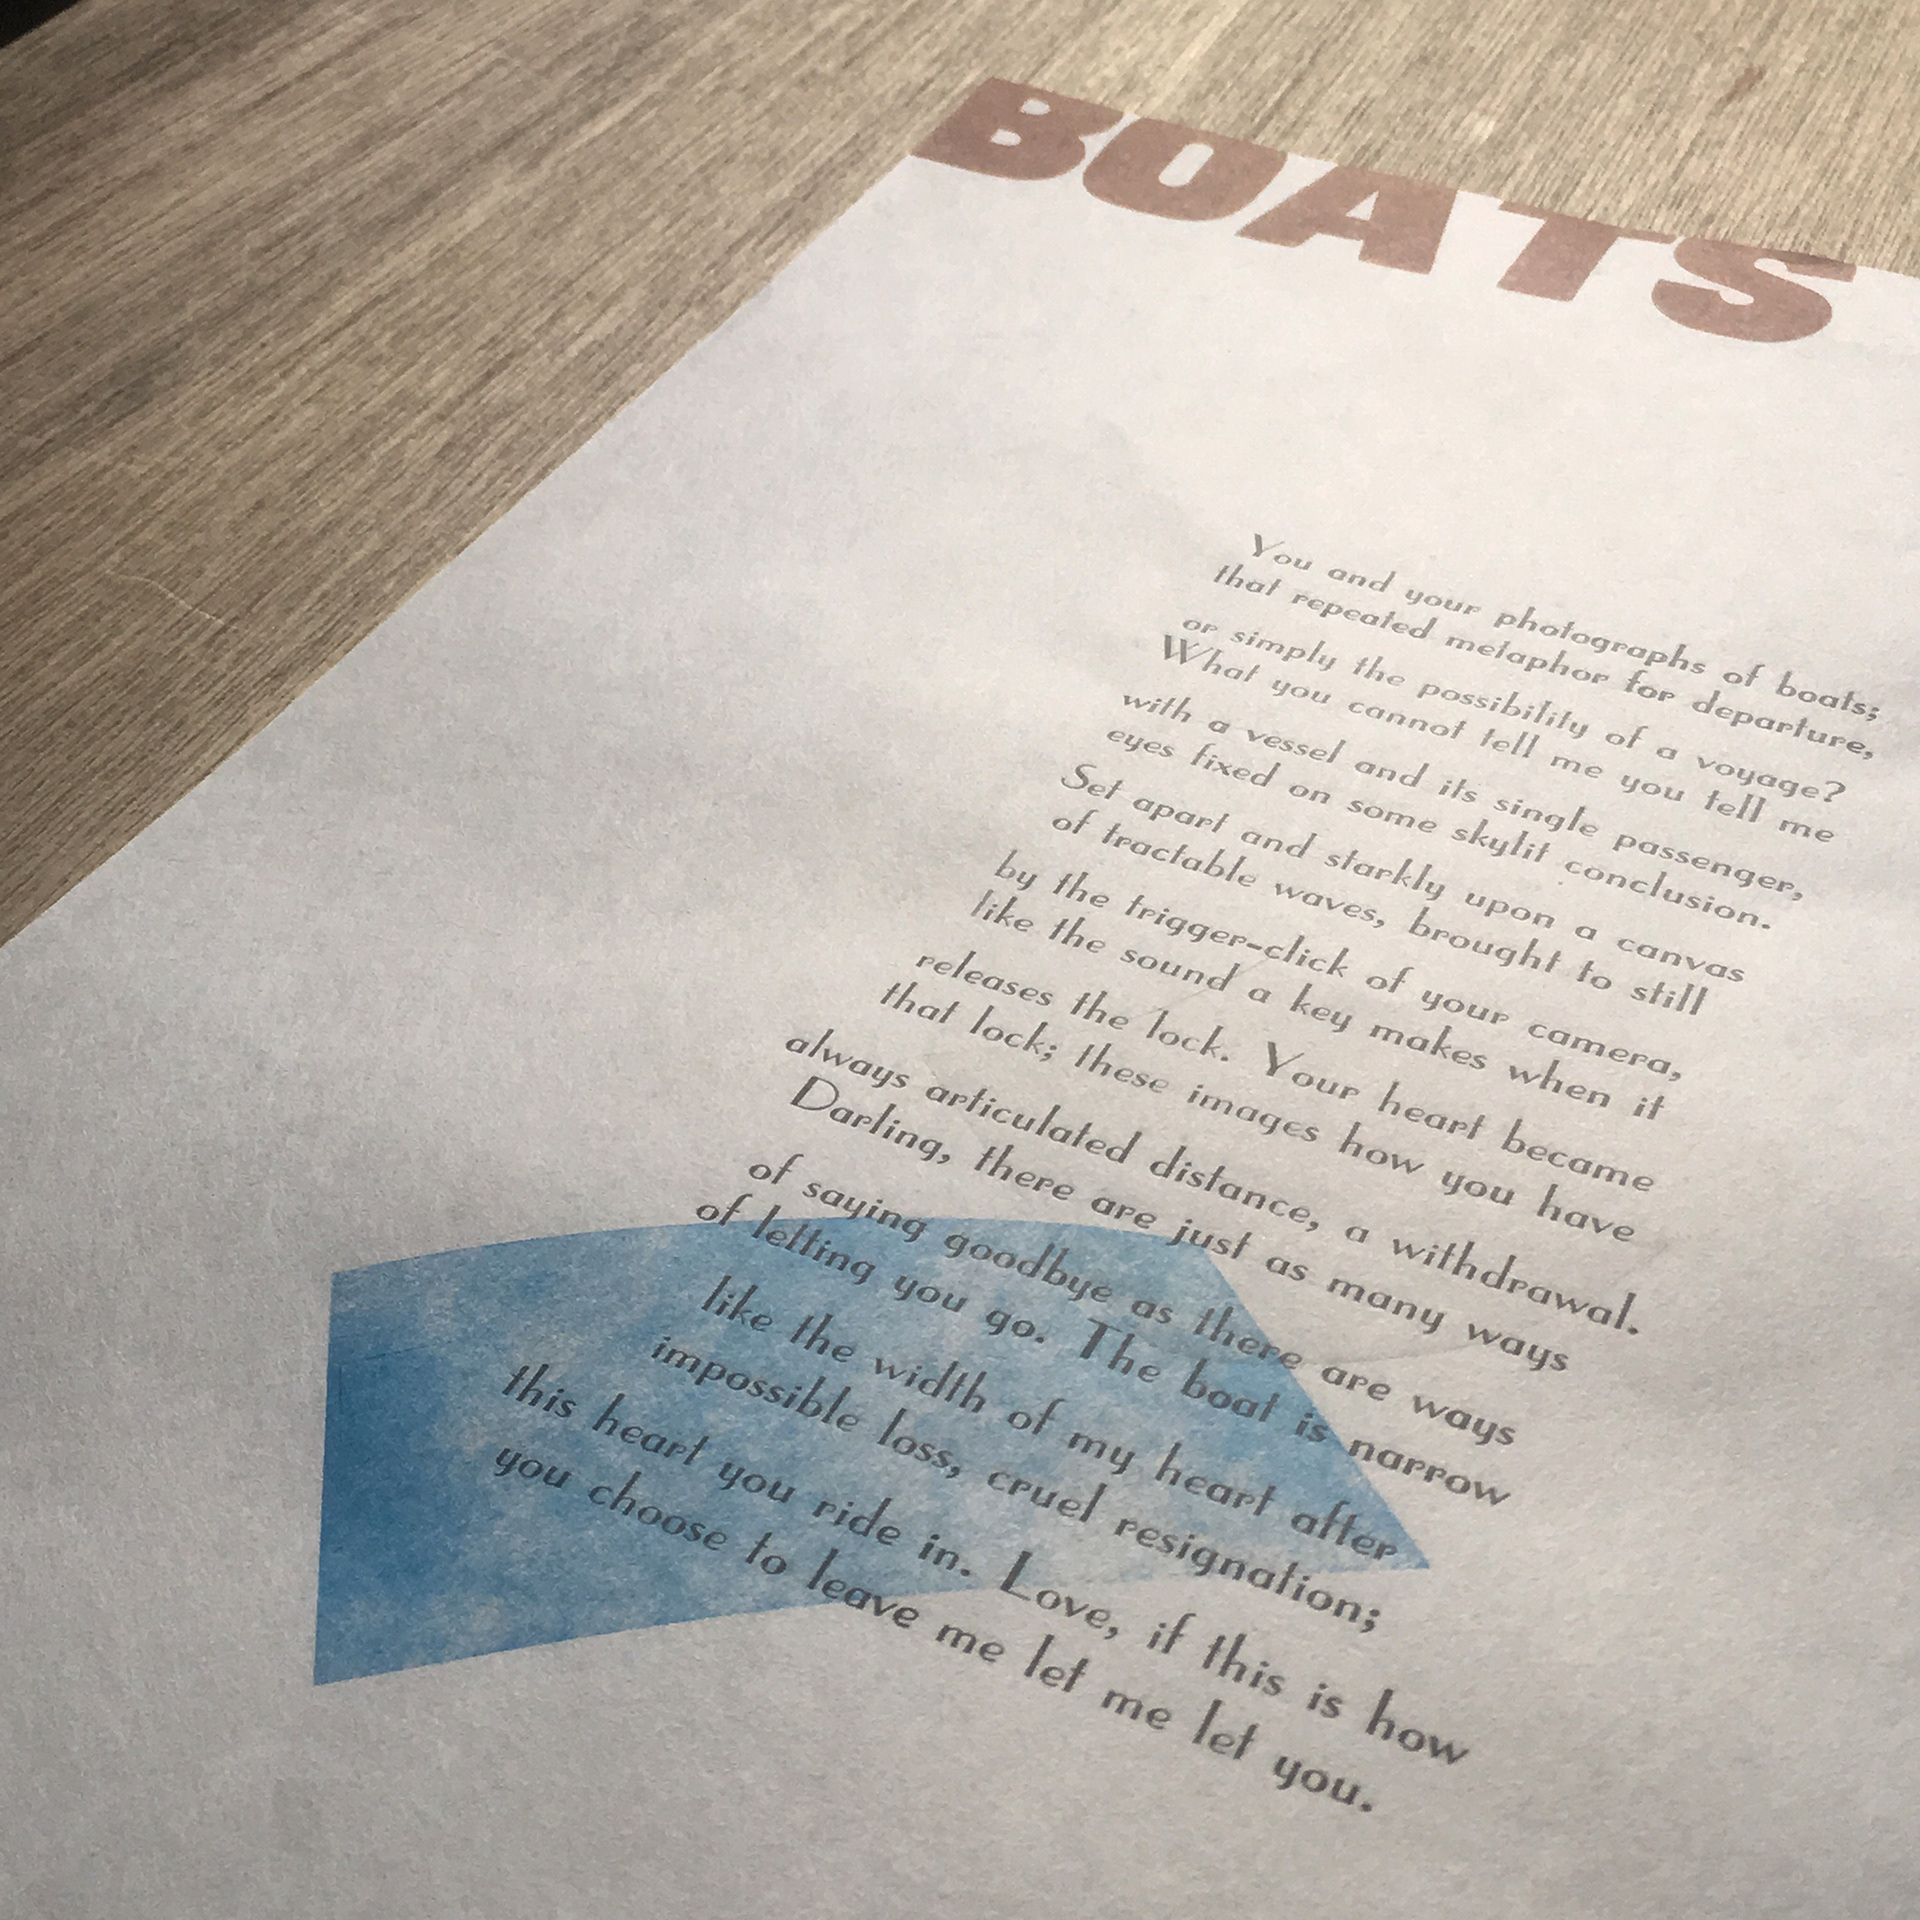 BOATS
You and your photographs of boats;
that repeated metaphor for departure,
or simply the possibility of a voyage?
What you cannot tell me you tell me
with a vessel and its single passenger,
eyes fixed on some skylit conclusion.
Set apart and starkly upon a canvas
of tractable waves, brought to still
by the trigger-click of your camera,
like the sound a key makes when it
releases the lock. Your heart became
that lock; these images how you have
always articulated distance, a withdrawal.
Darling, there are just as many ways
of saying goodbye as there are ways
of letting you go. The boat is narrow
like the width of my heart after
impossible loss, cruel resignation;
this heart you ride in. Love, if this is how
you choose to leave me let me let you.